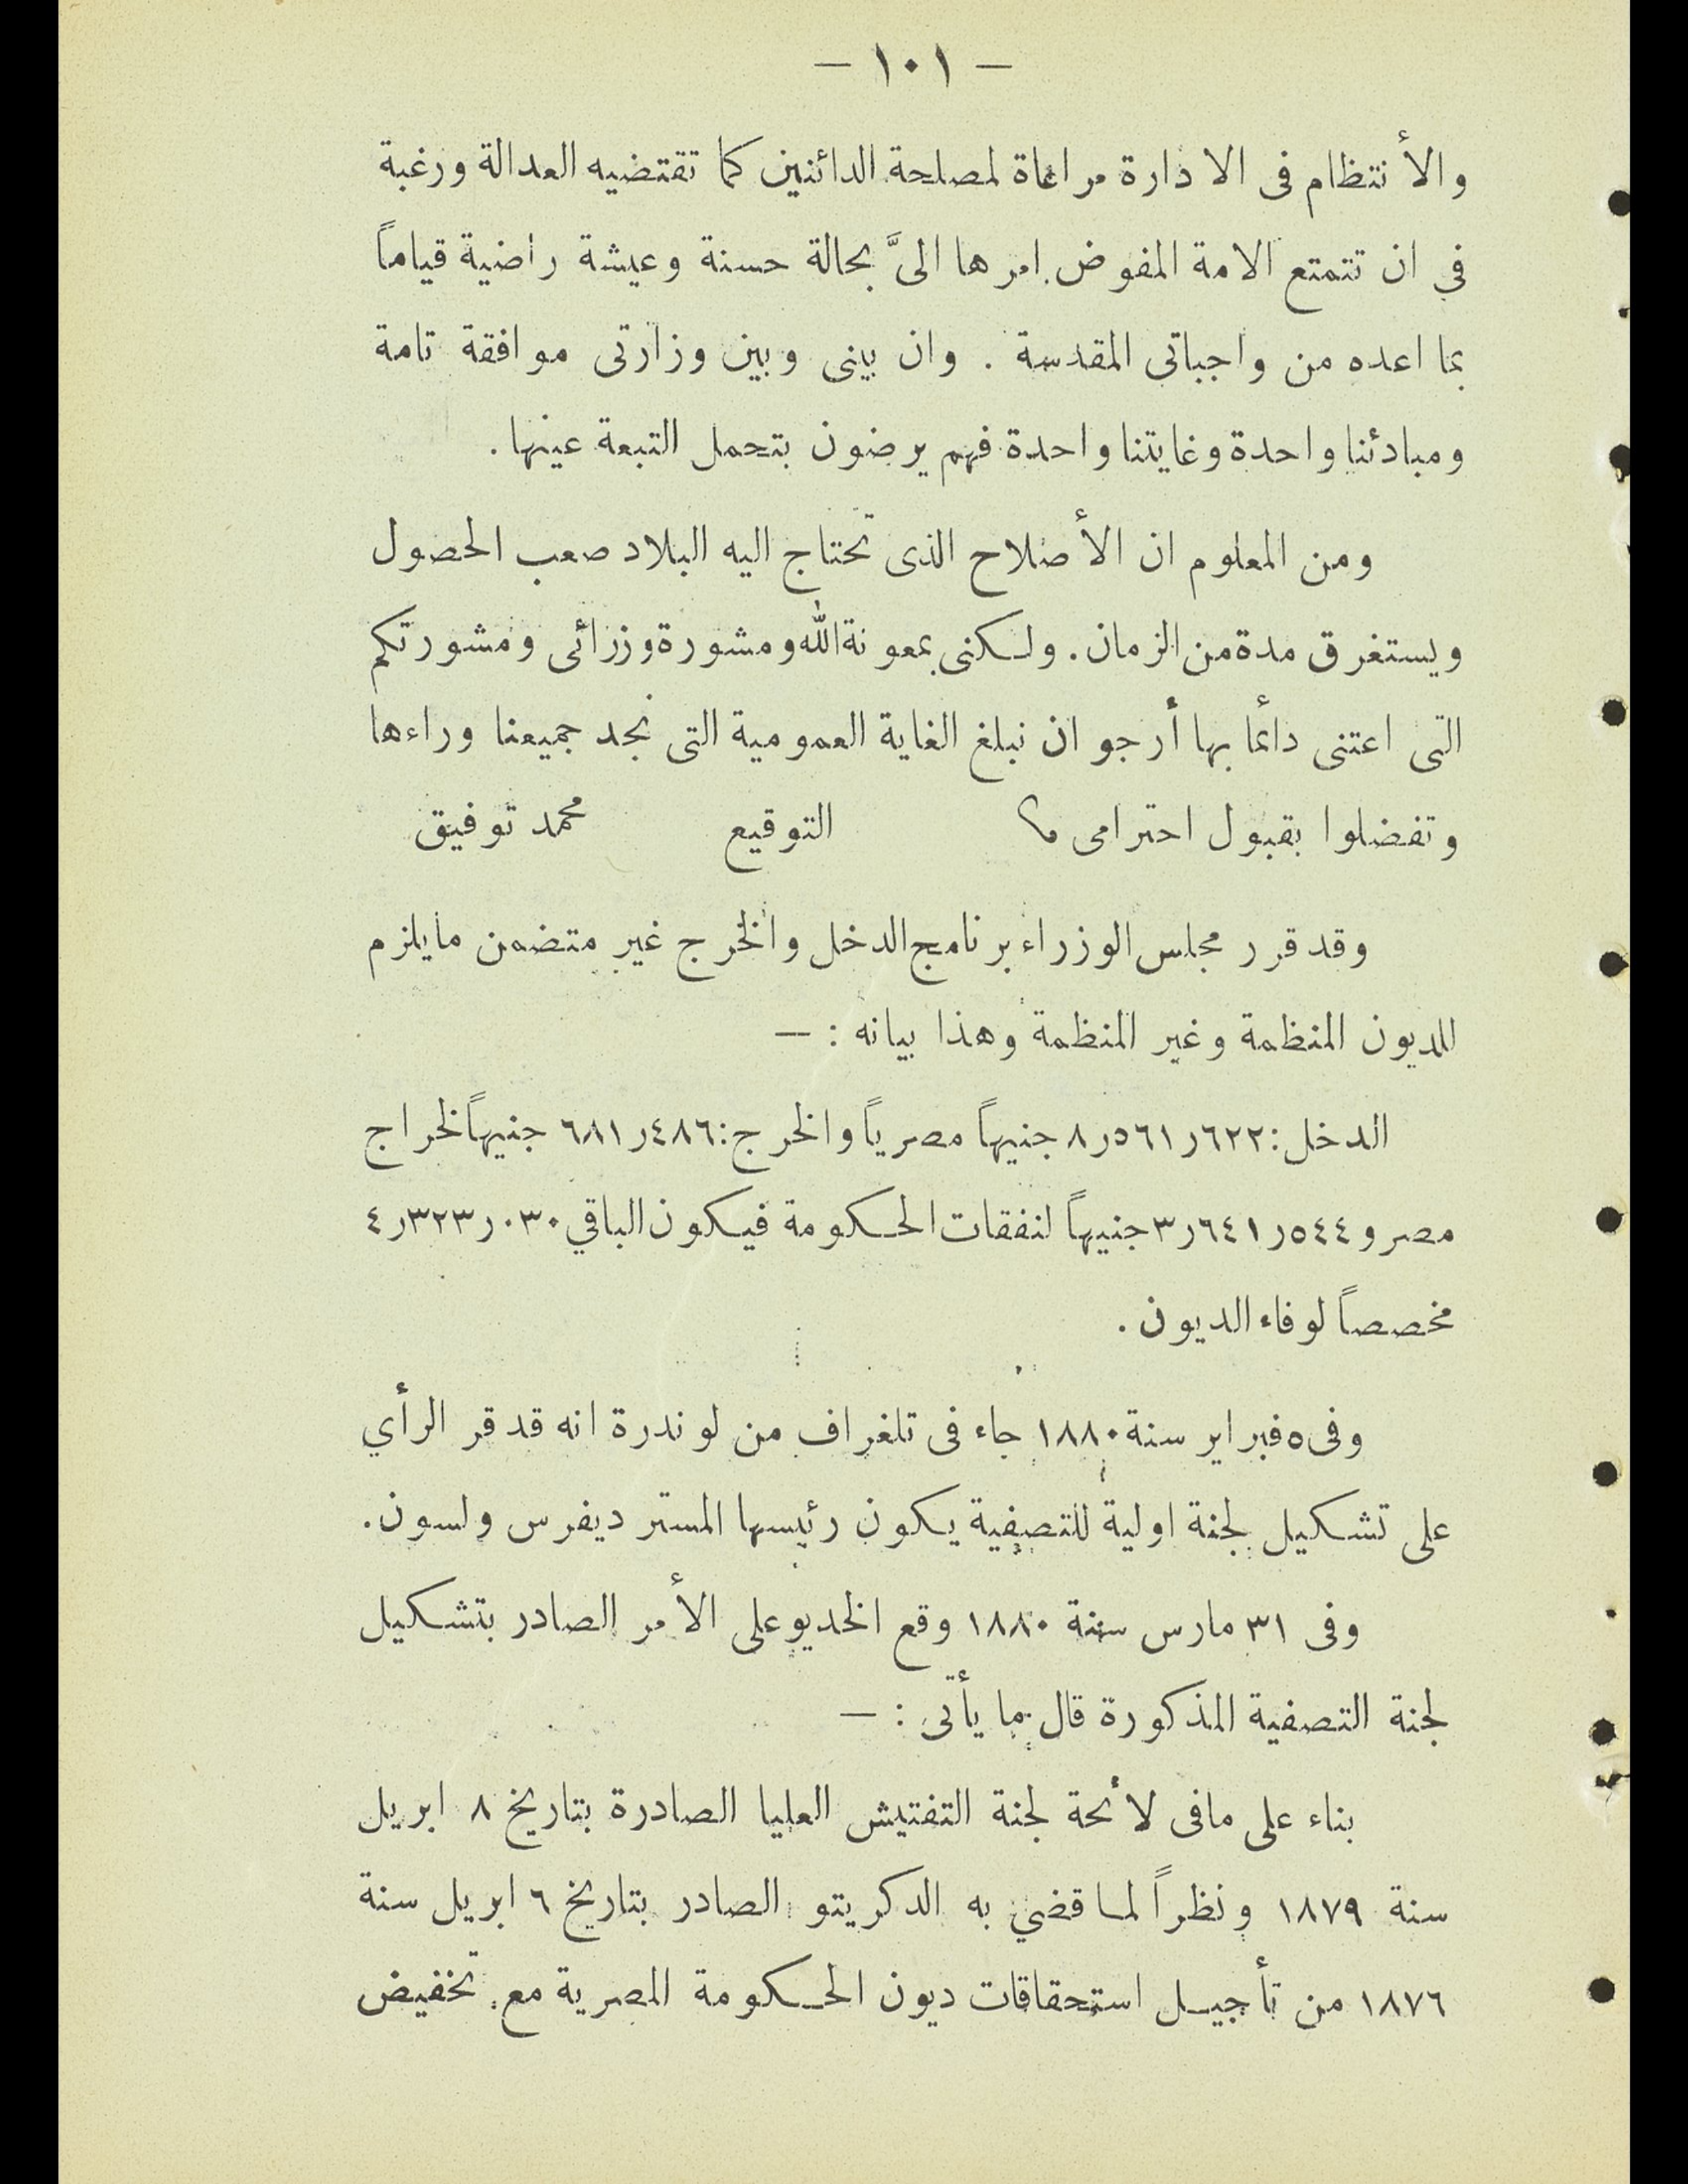 — ١٠١ —
والأنتظام فى الادارة مراعاة لمصلحة الدائنين كما تقتضيه العدالة ورغبة
في ان تتمتع الامة المفوض امرها الىَّ بحالة حسنة وعيشة راضية قياماً
بما اعده من واجباتى المقدسة . وان بينى وبين وزارتى موافقة تامة
ومبادئنا واحدة وغايتنا واحدة فهم يرضون بتحمل التبعة عينها .
ومن المعلوم ان الأصلاح الذى تحتاج اليه البلاد صعب الحصول
ويستغرق مدة من الزمان . ولكنى بمعونة الله ومشورة وزرائى ومشورتكم
التى اعتنى دائما بها أرجو ان نبلغ الغاية العمومية التى نجد جميعنا وراءها
وتفضلوا بقبول احترامى التوقيع محمد توفيق
وقد قرر مجلس الوزراء برنامج الدخل والخرج غير متضمن مايلزم
للديون المنظمة وغير المنظمة وهذا بيانه : —
الدخل : ٨٫٥٦١٫٦٢٢ جنيهاً مصرياً والخرج : ٦٨١٫٤٨٦ جنيهاً لخراج
مصر و ٣٫٦٤١٫٥٤٤ جنيهاً لنفقات الحكومة فيكون الباقي ٤٫٣٢٣٫٠٣٠
مخصصاً لوفاء الديون .
وفى ٥ فبراير سنة ١٨٨٠ جاء فى تلغراف من لوندرة انه قد قر الرأي
على تشكيل لجنة اولية للتصفية يكون رئيسها المستر ديفرس ولسون .
وفى ٣١ مارس سنة ١٨٨٠ وقع الخديو على الأمر الصادر بتشكيل
لجنة التصفية المذكورة قال ما يأتى : —
بناء على مافى لأئحة لجنة التفتيش العليا الصادرة بتاريخ ٨ ابريل
سنة ١٨٧٩ ونظراً لما قضي به الدكريتو الصادر بتاريخ ٦ ابريل سنة
١٨٧٦ من تأجيل استحقاقات ديون الحكومة المصرية مع تخفيض